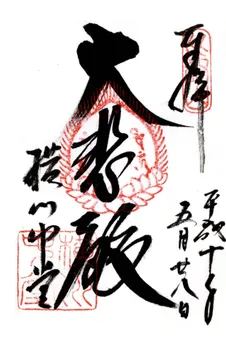 奉拝
平成十
五月廿八日
大悲殿
横川中堂